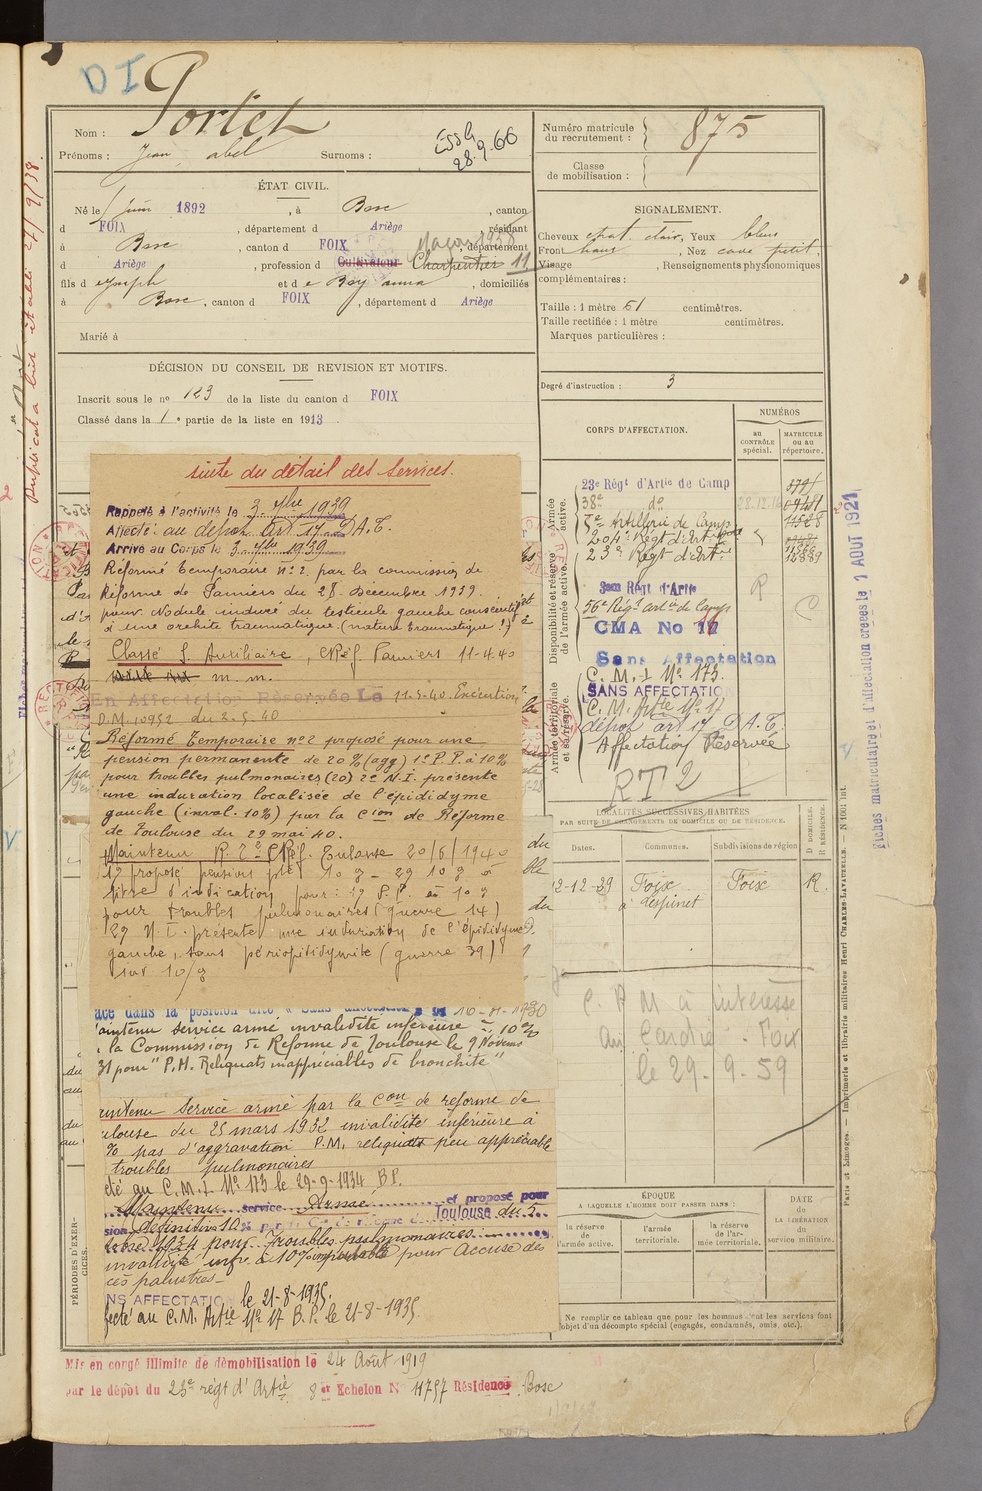 DI
Nom : Portet
Prénoms : Jean abel Surnoms :
28.9.66
Numéro matricule du recrutement : 875
Classe de mobilisation :
ÉTAT CIVIL.
Né le 1 juin 1892, à Bosc, canton
d FOIX, département d Ariège, résidant
à Bosc, canton d FOIX, département
d Ariège, profession d Cultivateur Charpentier 11
fils d et d Rey anna, domiciliés
à Bosc, canton d FOIX, département d Ariège
Marié à
SIGNALEMENT.
Cheveux chat. clair, Yeux bleus
Front haut, Nez cave petit.
Visage , Renseignements physionomiques
complémentaires :
Taille : 1 mètre 61 centimètres.
Taille rectifiée : 1 mètre centimètres.
Marques particulières :
Degré d'instruction : 3
DÉCISION DU CONSEIL DE REVISION ET MOTIFS.
Inscrit sous le no 123 de la liste du canton d FOIX
Classé dans la 1e partie de la liste en 1913
CORPS D'AFFECTATION.
NUMÉROS
au CONTRÔLE spécial.
MATRICULE ou au répertoire.
Armée active.
Disponibilité et réserve de l'armée active.
Armée territoriale et sa réserve.
23e Régt d'Artie de Camp
38e do 28.12.16
5e Artillerie de Camp
204e Régt d'Art
23e Régt d'Artie 12889
3me Régt d'Artie
56e Régt artie de Camp
CMA No 17
Sans Affectation
C.M.I No 173.
SANS AFFECTATION
C.M. Artie No 17
dépôt art 17 D.A.T.
Affectation Réservée
RT2
suite du détail des services.
Rappelé à l'activité le 3 7bre 1939
Affecté au dépôt art 17 D.A.T.
Arrivé au Corps le 3 7bre 1939
Réformé temporaire no 2 par la commission de
Réforme de Pamiers du 28 Décembre 1939.
pour Nodule induré du testicule gauche consécutif
à une orchite traumatique (nature traumatique !)
Classé S. Auxiliaire, CRéf. Pamiers 11-4-40
m. m.
En Affectation Réservée Le 11-5-40. Exécution
D.M. 10952 du 2-5-40
Réformé Temporaire no 2 proposé pour une
pension permanente de 20% (agg) 1o P.P. à 10%
pour troubles pulmonaires (20) 2o N.I. présente
une induration localisée de l'épididyme
gauche (inval. 10%) par la Cion de Réforme
de Toulouse du 29 mai 40.
Maintenu R.T. 2 CRéf. Toulouse 20/6/1940
pour troubles pulmonaires (guerre 14)
2o N.I. présente une induration de l'épididyme
gauche, sans périépididymite (guerre 39)
inv 10%
LOCALITÉS SUCCESSIVES HABITÉES
PAR SUITE DE CHANGEMENTS DE DOMICILE OU DE RÉSIDENCE.
Dates. Communes. Subdivisions de région D DOMICILE. R RÉSIDENCE.
2-12-29 Foix Foix R.
à l'espinet
C.P.M à intéressé
au Cardié. Foix
le 29-9-59
ace dans la position dite « Sans affectation » le 10-11-1930
aintenu service armé invalidité inférieure à 10%
la Commission de Réforme de Toulouse le 9 Novemb
31 pour "P.M. Reliquats inappréciables de bronchite"
aintenu service armé par la Con de réforme de
ulouse du 25 mars 1932 invalidité inférieure à
% pas d'aggravation P.M. reliquats peu appréciable
troubles pulmonaires
cté au C.M.I No 173 le 29-9-1934 B.P.
Maintenu service Armé et proposé pour
sion définitive 10% Toulouse du 5
1934 pour Troubles pulmonaires
invalidité infre à 10% pour Accuse des
cès palustres
NS AFFECTATION le 21-8-1935.
fecté au C.M. Artie No 17 B.P. le 21-8-1935
PÉRIODES D'EXERCICES.
ÉPOQUE
A LAQUELLE L'HOMME DOIT PASSER DANS :
la réserve de l'armée active.
l'armée territoriale.
la réserve de l'armée territoriale.
DATE de LA LIBÉRATION du service militaire.
Ne remplir ce tableau que pour les hommes dont les services font
l'objet d'un décompte spécial (engagés, condamnés, omis, etc.).
Mis en congé illimité de démobilisation le 24 Août 1919
par le dépôt du 23e régt d'Artie 8e Echelon No 11757 Résidence Bosc
Fiches matriculaire et d'affectation créées le 1 AOUT 1921
Paris et Limoges. — Imprimerie et librairie militaires Henri CHARLES-LAVAUZELLE. — N° 1001 int.
Duplicata livret établi 27/9/38.